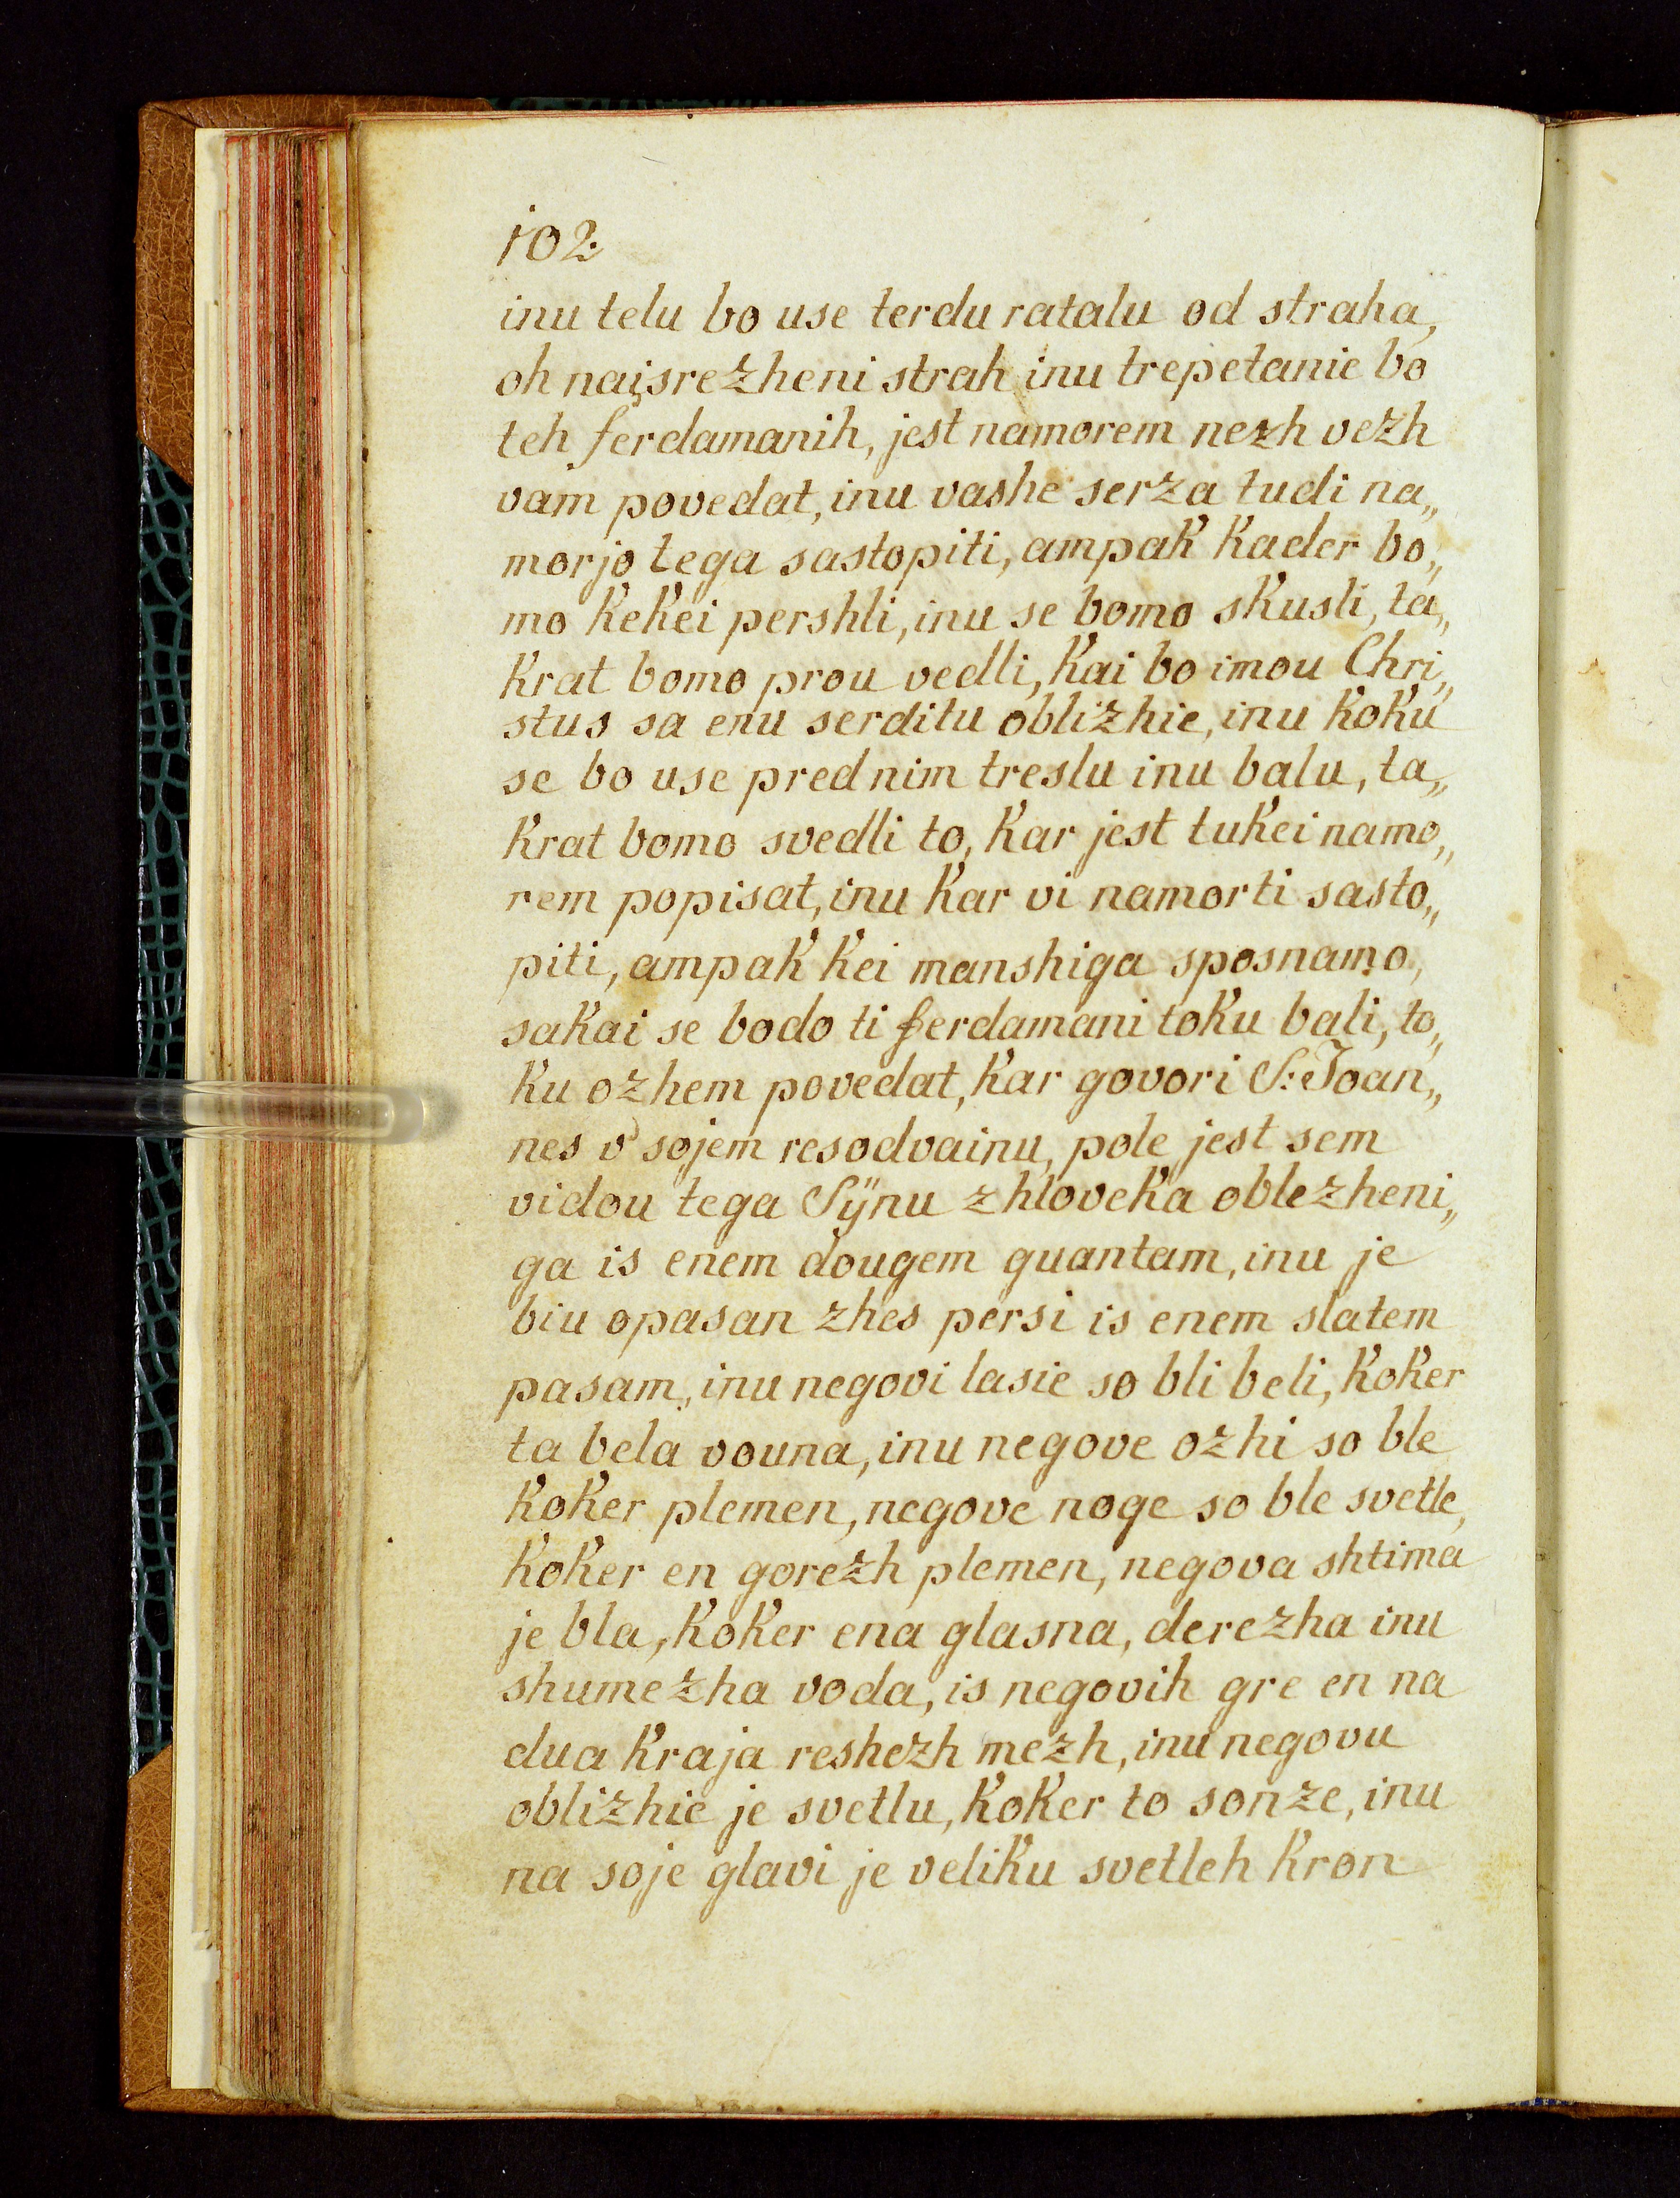 102.
inu telu bo use terdu ratalu od straha,
oh naisrezheni strah inu trepetanie bo
teh ferdamanih, jest namorem nezh vezh
vam povedat, inu vashe serza tudi na„
morjo tega sastopiti, ampak kader bo„
mo kekei pershli, inu se bomo skusli, ta„
krat bomo prou vedli, kai bo imou Chri„
stus sa enu serditu oblizhie, inu koku
se bo use pred nim treslu inu balu, ta„
krat bomo svedli to, kar jest tukei namo„
rem popisat, inu kar vi namorti sasto„
piti, ampak kei manshiga sposnamo,
sakai se bodo ti ferdamani toku bali, to„
ku ozhem povedat, kar govori S: Joan„
nes v sojem resodvainu, pole jest sem
vidou tega Sÿnu zhloveka oblezheni„
ga is enem dougem guantam, inu je
biu opasan zhes persi is enem slatem
pasam, inu negovi lasie so bli beli, koker
ta bela vouna, inu negove ozhi so ble
koker plemen, negove noge so ble svetle,
koker en gorezh plemen, negova shtima
je bla, koker ena glasna, derezha inu
shumezha voda, is negovih gre en na
dua kraja reshezh mezh, inu negovu
oblizhie je svetlu, koker to sonze, inu
na soje glavi je veliku svetleh kron